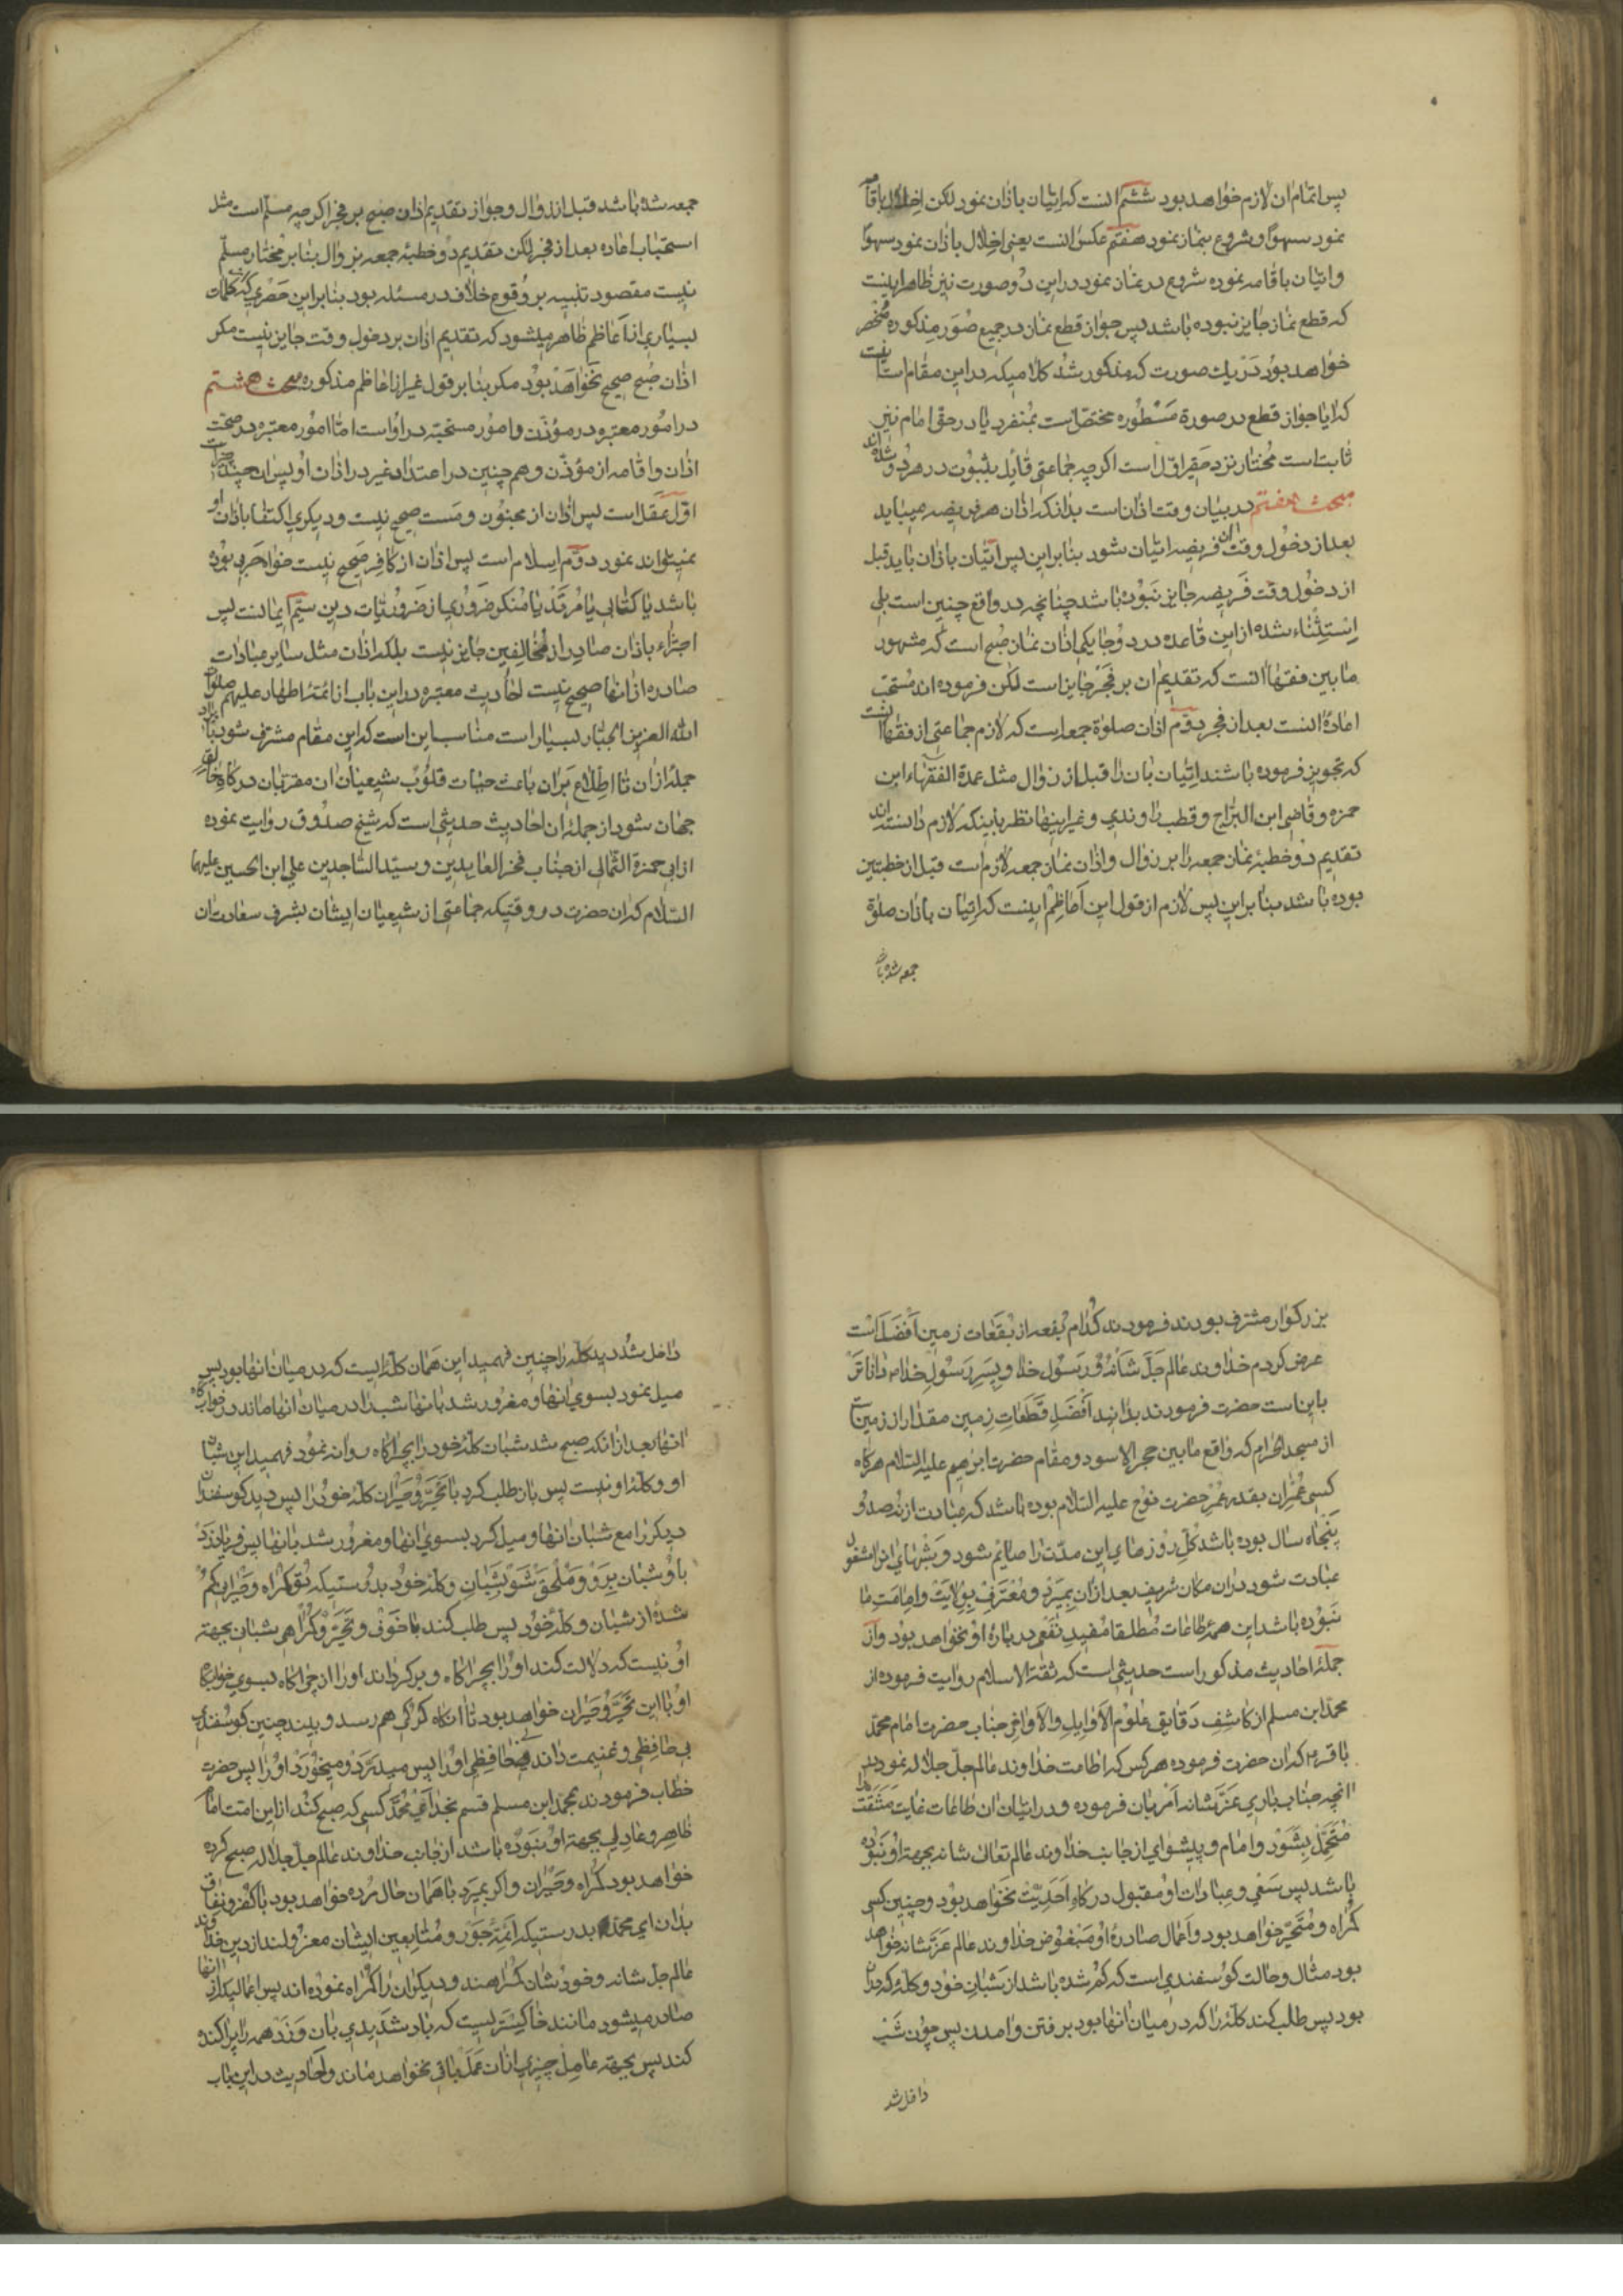 پس اتمام ان لازم خواهد بود ششم انست که اتیان باذان نمود لکن اخلال باقامه
نمود سهوا و شروع بنماز نمود هفتم عکس انست یعنی اخلال باذان نمود سهوا
و اتیان باقامه نموده شروع در نماز نمود در این دو صورت نیز ظاهر اینست
که قطع نماز جایز نبوده باشد پس جواز قطع نماز در جمیع صور مذکوره منحصر
خواهد بود در یك صورت که مذکور شد کلامیکه در این مقام است اینست
که ایا جواز قطع در صورة مسطوره مختص است بمنفرد یا در حق امام نیز
ثابت است مختار نزد حقیر اول است اکرچه جماعتی قایل بثبوت در هر دو شده اند
مبحث هفتم در بیان وقت اذان است بدانکه اذان هر فریضه میباید
بعد از دخول وقت ان فریضه اتیان شود بنابراین پس اتیان باذان باید قبل
از دخول وقت فریضه جایز نبوده باشد چنانچه در واقع چنین است بلی
استثناء شده از این قاعده در دو جا یکی اذان نماز صبح است که مشهور
ما بین فقها انست که تقدیم ان بر فجر جایز است لکن فرموده اند مستحب
اعادۀ انست بعد از فجر دوم اذان صلوة جمعه است که لازم جماعتی از فقها انست
که تجویز فرموده باشند اتیان بان را قبل از زوال مثل عمدة الفقهاء ابن
حمزه و قاضی ابن البراج و قطب راوندی و غیر اینها نظر باینکه لازم دانسته اند
تقدیم دو خطبۀ نماز جمعه را بر زوال و اذان نماز جمعه لازم است قبل از خطبتین
بوده باشد بنابراین پس لازم از قول این اعاظم اینست که اتیان باذان صلوة
جمعه شده باشد
جمعه شده باشد قبل از زوال و جواز تقدیم اذان صبح بر فجر اکرچه مسلم است مثل
استحباب اعاده بعد از فجر لکن تقدیم دو خطبۀ جمعه بزوال بنابر مختار مسلم
نیست مقصود تنبیه بر وقوع خلاف در مسئله بود بنابراین حصری که از کلمات
بسیاری از اعاظم ظاهر میشود که تقدیم اذان بر دخول وقت جایز نیست مکر
اذان صبح صحیح نخواهد بود مکر بنابر قول غیر از اعاظم مذکوره مبحث هشتم
در امور معتبره در مؤذن و امور مستحبه در او است اما امور معتبره در صحت
اذان و اقامه از مؤذن و همچنین در اعتداد غیر در اذان او پس ان چند چیز است
اول عقل است پس اذان از مجنون و مست صحیح نیست و دیکری اکتفا باذان او
نمیتواند نمود دوم اسلام است پس اذان از کافر صحیح نیست خواه حربی بوده
باشد یا کتابی یا مرتد یا منکر ضروری از ضروریات دین سیم ایمانست پس
اجتزاء باذان صادر از مخالفین جایز نیست بلکه اذان مثل سایر عبادات
صادره از انها صحیح نیست احادیث معتبره در این باب از ائمه اطهار علیهم صلوات
الله العزیز الجبار بسیار است مناسب این است که این مقام مشرف شود بایراد
جملۀ از ان تا اطلاع بر ان باعث حیات قلوب شیعیان ان مقربان درکاه خالق
جهان شود از جملۀ ان احادیث حدیثی است که شیخ صدوق روایت نموده
از ابی حمزة الثمالی از جناب فخر العابدین و سید الساجدین علی ابن الحسین علیهما
السلام که ان حضرت در وقتیکه جماعتی از شیعیان ایشان بشرف سعادت ان
بزرکوار مشرف بودند فرمودند کدام بقعه از بقعات زمین افضل است
عرض کردم خداوند عالم جل شأنه و رسول خدا و پسر رسول خدا داناتر
باین است حضرت فرمودند بدانید افضل قطعات زمین مقدار از زمین است
از مسجد الحرام که واقع ما بین حجر الاسود و مقام حضرت ابرهیم علیه السلام هرکاه
کسی عمر ان بقدر عمر حضرت نوح علیه السلام بوده باشد که عبارت از نهصد و
پنجاه سال بوده باشد کل روزهای این مدت را صائم شود و شبهای انرا مشغول
عبادت شود در ان مکان شریف بعد از ان بمیرد و معترف بولایت و امامت ما
نبوده باشد این همۀ طاعات مطلقا مفید نفعی در بارۀ او نخواهد بود و از
جملۀ احادیث مذکور است حدیثی است که ثقة الاسلام روایت فرموده از
محمد ابن مسلم از کاشف دقایق علوم الاوایل والاواخر جناب حضرت امام محمد
باقر که ان حضرت فرموده هر کس که اطاعت خداوند عالم جل جلاله نمود در
انچه جناب باری عز شانه امر بان فرموده و در اتیان ان طاعات غایت مشقت را
متحمل بشود و امام و پیشوای از جانب خداوند عالم تعالی شانه بجهة او نبوده
باشد پس سعی و عبادات او مقبول درکاه احدیت نخواهد بود و چنین کسی
کمراه و متحیر خواهد بود و اعمال صادرۀ او مبغوض خداوند عالم عز شانه خواهد
بود مثال و حالت کوسفندی است که کم شده باشد از شبان خود و کلۀ که در ان
بود پس طلب کند کلۀ را که در میان انها بود برفتن و امدن پس چون شب
داخل شد
داخل شد دید کلۀ را چنین فهمید این همان کلۀ ایست که در میان انها بود پس
میل نمود بسوی انها و مغرور شد بانها شب را در میان انها ماند در خوابکاه
انها بعد از انکه صبح شد شبان کلۀ خود را بچراکاه روانه نمود فهمید این شبان
او و کلۀ او نیست پس باز طلب کرد با تحیر و حیران کلۀ خود را پس دید کوسفندان
دیکر را مع شبان انها و میل کرد بسوی انها و مغرور شد بانها پس فریاد زد
باو شبان برو و ملحق شو بشبان و کلۀ خود بدرستیکه تو کمراه و حیران کم
شدۀ از شبان و کلۀ خود پس طلب کند با خوف و تحیر و کمراهی شبان بجهة
او نیست که دلالت کند او را بچراکاه و برکرداند او را از چراکاه بسوی خوابکاه
او با این تحیر و حیران خواهد بود تا انکاه کرکی هم رسد و بیند چنین کوسفندی
بی حافظی و غنیمت داند بی حافظی او را پس میدرد و میخورد او را پس حضرت
خطاب فرمودند بمحمد ابن مسلم قسم بخدا ای محمد کسی که صبح کند از این امت امام
ظاهر و عادلی بجهة او نبوده باشد از جانب خداوند عالم جل جلاله صبح کرده
خواهد بود کمراه و حیران و اکر بمیرد باهمان حال مرده خواهد بود با کفر و نفاق
بدان ای محمد بدرستیکه ائمۀ جور و متابعین ایشان معزولند از دین خداوند
عالم جل شانه و خودشان کمراهند و دیکران را کمراه نموده اند پس اعمالیکه از انها
صادر میشود مانند خاکستریست که باد شدیدی بان وزد همه را پراکنده
کند پس بجهة عامل چیزی از ان عمل باقی نخواهد ماند و احادیث در این باب